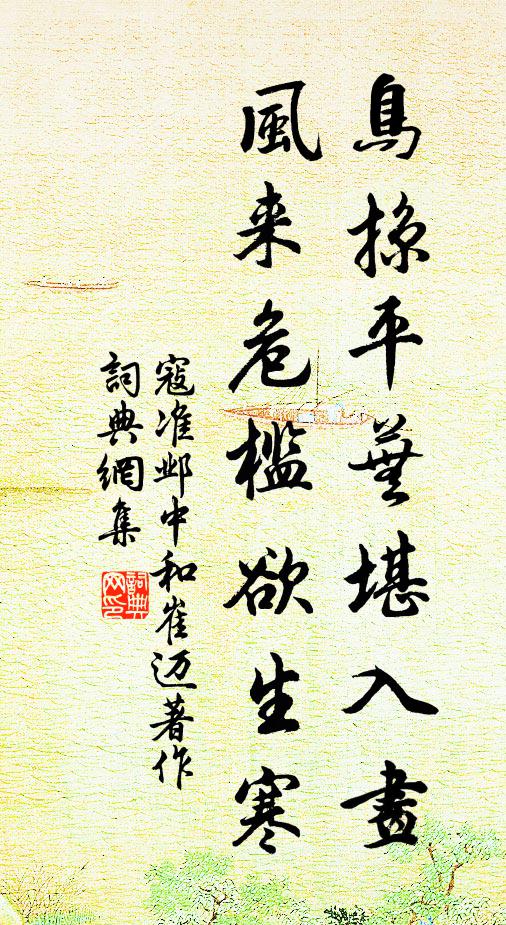 鳥掠平蕪堪入畫
風来危檻欲生寒
寇准邺中和崔迈著作
詞典網集
詞典网印